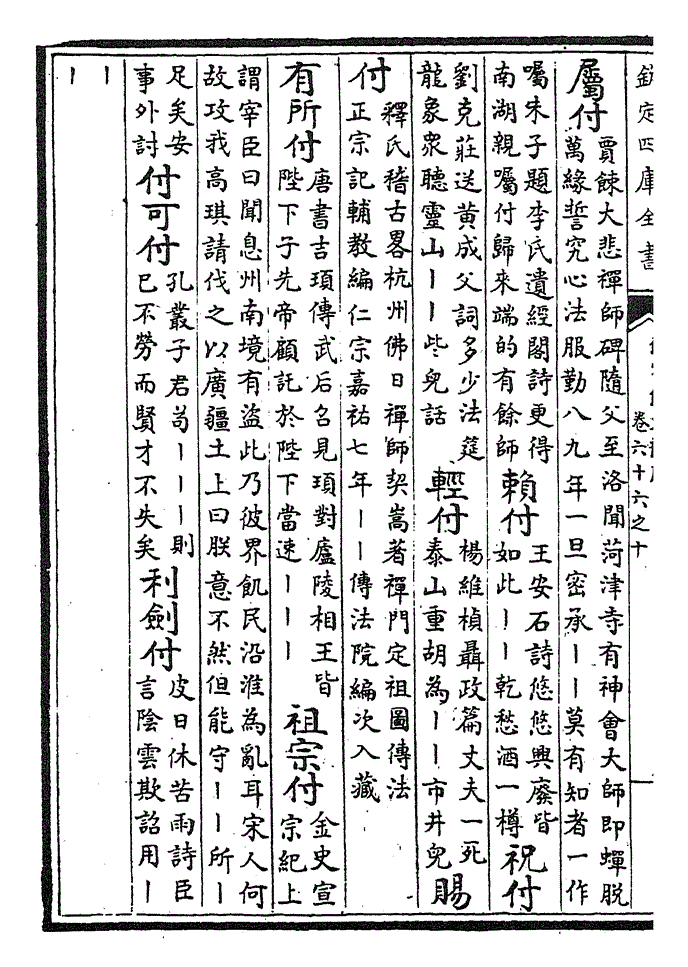 欽定四庫全書
卷六十六之十
屬付
賈餗大悲禪師碑隨父至洛聞菏津寺有神會大師即蟬脱
萬緣誓究心法服勤八九年一旦密承丨丨莫有知者一作
囑朱子題李氏遺經閣詩更得
南湖親囑付歸來端的有餘師
賴付
王安石詩悠悠興廢皆
如此丨丨乾愁酒一樽
祝付
劉克莊送黄成父詞多少法筵
龍象衆聽靈山丨丨些兒話
輕付
楊維楨聶政篇丈夫一死
泰山重胡為丨丨市井兒
賜
付
釋氏稽古畧杭州佛日禪師契嵩著禪門定祖圖傳法
正宗記輔教編仁宗嘉祐七年丨丨傳法院編次入藏
有所付
唐書吉頊傳武后召見頊對廬陵相王皆
陛下子先帝顧託於陛下當速丨丨丨
祖宗付
金史宣
宗紀上
謂宰臣曰聞息州南境有盜此乃彼界飢民沿淮為亂耳宋人何
故攻我高琪請伐之以廣疆土上曰朕意不然但能守丨丨所丨
足矣安
事外討
付可付
孔叢子君茍丨丨丨則
已不勞而賢才不失矣
利劍付
皮日休苦雨詩臣
言陰雲欺詔用丨
丨
丨